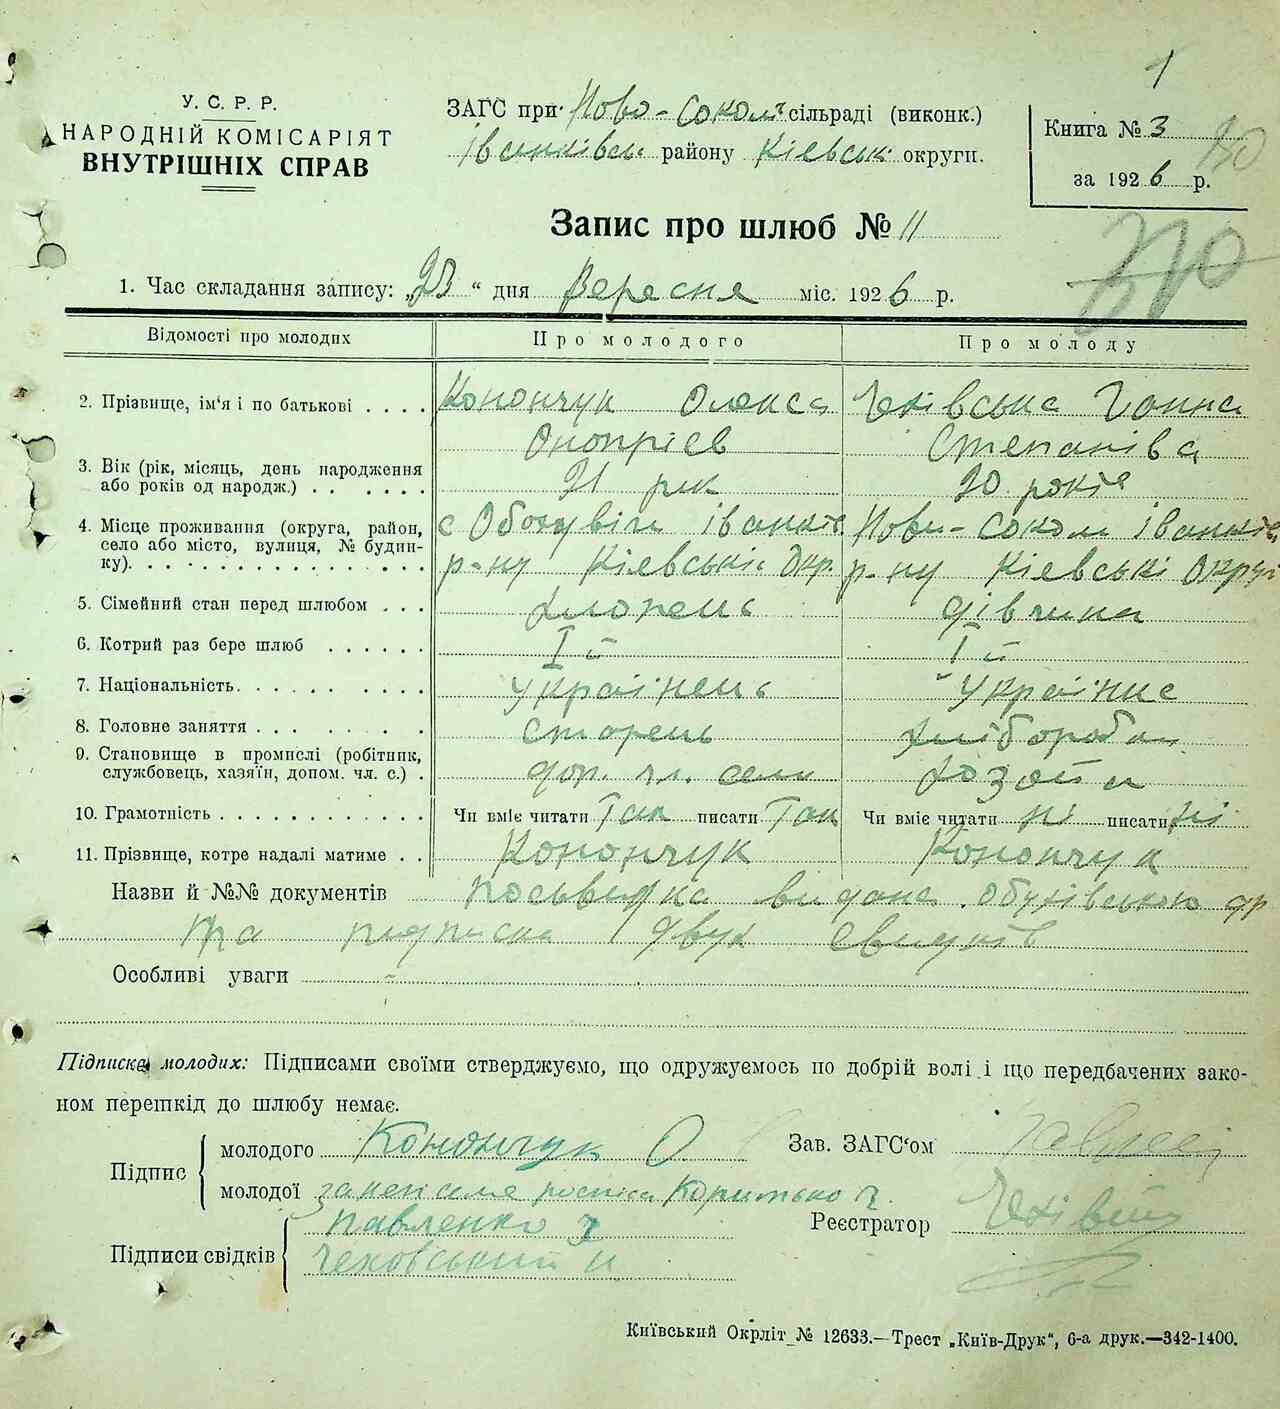 1
У. С. Р. Р.
НАРОДНІЙ КОМІСАРІЯТ
ВНУТРІШНІХ СПРАВ
ЗАГС при Ново-Соколᵇ сільраді (виконк.)
Іванківсь району Кіевськ округи.
Книга № 3
за 1926 р.
Запис про шлюб № 11
1. Час складання запису: „23“ дня Вересня міс. 1926 р.
Відомості про молодих
Про молодого
Про молоду
2. Прізвище, ім'я і по батькові
Конончук Олекса Онопріев
Чехівська Ганна Степанівa
3. Вік (рік, місяць, день народження або років од народж.)
21 рік
20 років
4. Місце проживання (округа, район, село або місто, вулиця, № будинку).
с іванків. р-ну Кіевськіь Окр.
Ново-Сокол іванків. р-ну Кіевські Округі
5. Сімейний стан перед шлюбом
дівчина
6. Котрий раз бере шлюб
Iй
Iй
7. Національність
Українець
Українка
8. Головне заняття
9. Становище в промислі (робітник, службовець, хазяїн, допом. чл. с.)
доп. чл. семи
10. Грамотність
Чи вміє читати Так писати Так
Чи вміє читати ні писати ні
11. Прізвище, котре надалі матиме
Конончук
Конончук
Назви й №№ документів посьведка видана Обухівською
підписка двух свидків
Особливі уваги
Підписка молодих: Підписами своїми стверджуємо, що одружуємось по добрій волі і що передбачених зако-
ном перешкід до шлюбу немає.
Підпис
молодого Конончук О
молодої
Зав. ЗАГС'ом
Підписи свідків
Павленко
Чеховський И
Реєстратор
Київський Окрліт № 12633.—Трест „Київ-Друк“, 6-а друк.—342-1400.